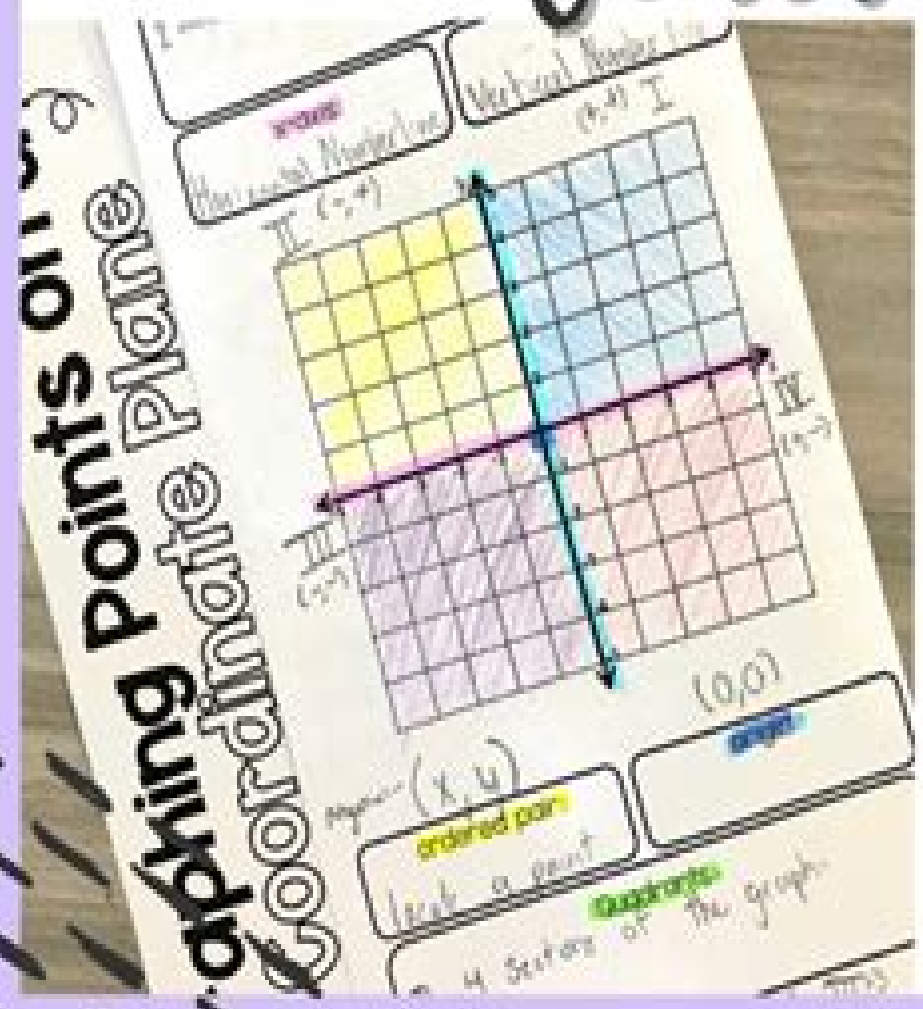 Graphing Points on a
Coordinate Plane
x-axis
Horizontal Number line
Vertical Number line
(+,+) I
II (-,+)
IV
(+,-)
III
(-,-)
(0,0)
origin
(x,y)
ordered pair:
locate a point
Quadrants:
4 Sections of the graph.